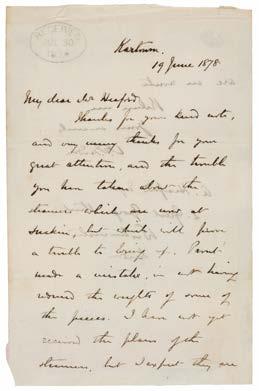 RECEIVED
JUL 30
Kartoum.
19 June 1878.
My dear Mr
Thanks for your kind note,
and very many thanks for your
great attention, and the trouble
you have taken about the
steamers which are now at
Suakin, but which will prove
a trouble to bring up.
made a mistake, in not having
reduced the weights of some of
the pieces. I have not yet
received the plans of the
steamers, but I expect they are